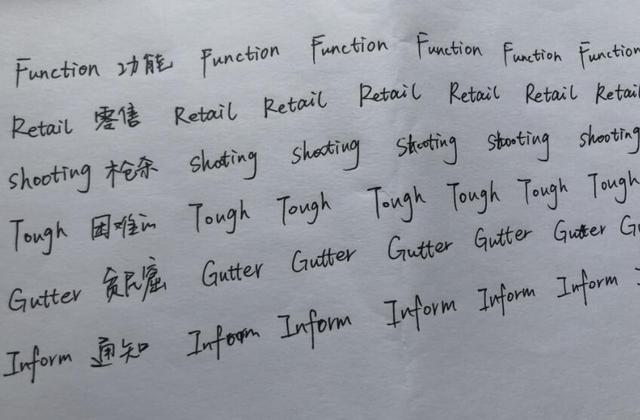 Function 功能 Function Function Function Function Function
Retail 零售 Retail Retail Retail Retail Retail Retail
shooting 枪杀 shoting shooting shooting shooting shooting
Tough 困难的 Tough Tough Tough Tough Tough Tough
Gutter 贫民窟 Gutter Gutter Gutter Gutter Gutter
Inform 通知 Inform Inform Inform Inform Inform